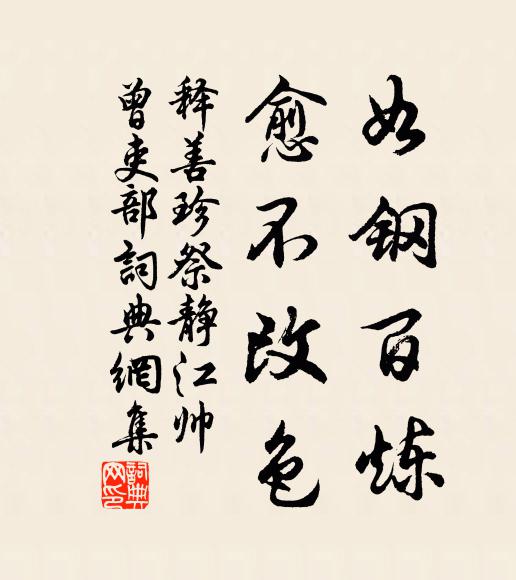 如鋼百炼
愈不改色
释善珍祭静江帅
曾吏部詞典網集
詞典网印